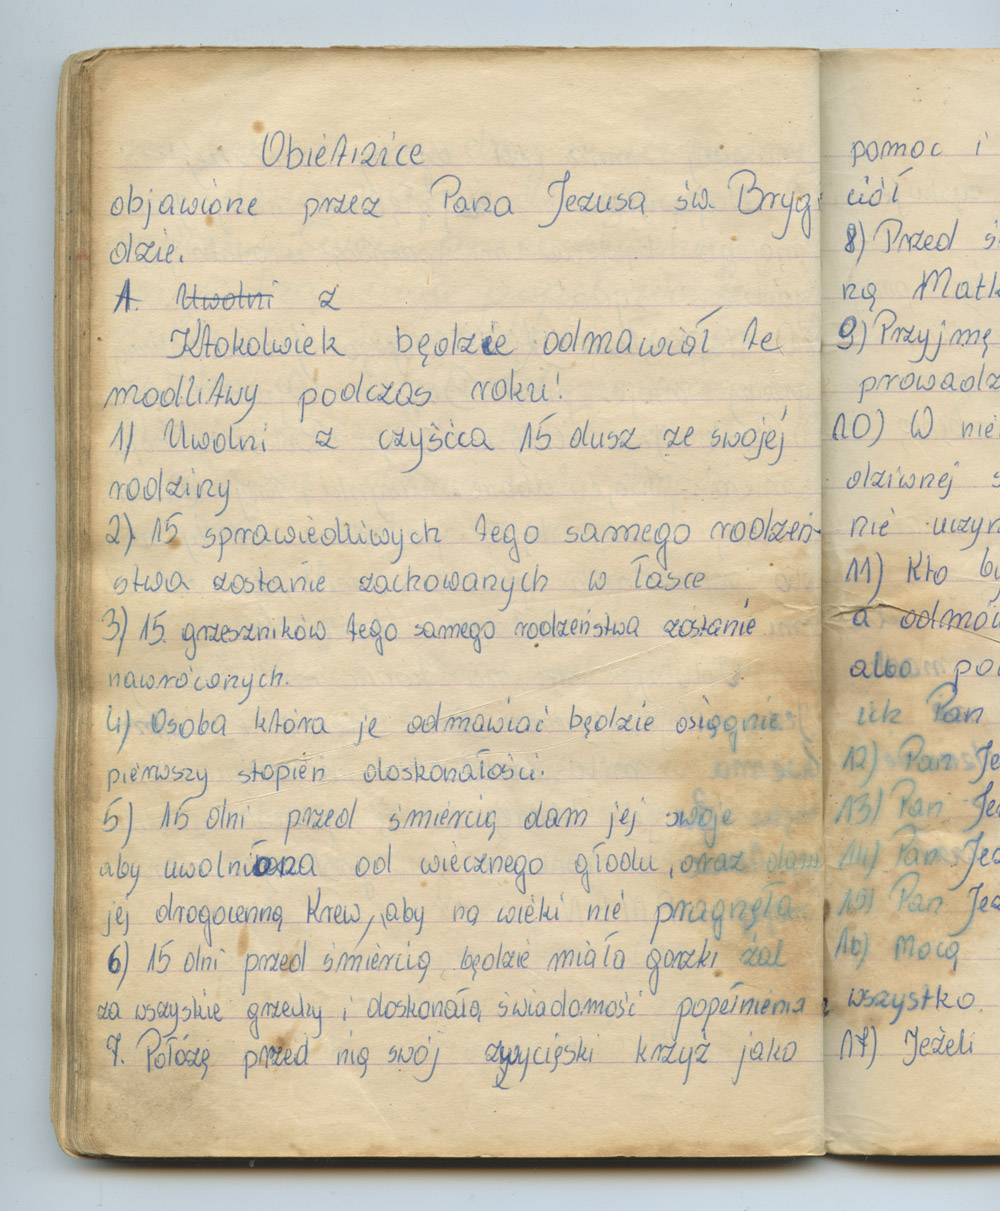 Obietnice
objawione przez Pana Jezusa św. Bryg
dzie.
1. Uwolni z
Ktokolwiek będzie odmawiał te
modlitwy podczas roku!
1) Uwolni z czyśćca 15 dusz ze swojej
rodziny
2) 15 sprawiedliwych tego samego rodzeń-
stwa zostanie zachowanych w łasce
3) 15. grzeszników tego samego rodzeństwa zostanie
nawróconych.
4) Osoba która je odmawiać będzie osiągnie
pierwszy stopień doskonałości.
5) 15 dni przed śmiercią dam jej swoje
aby uwolniona od wiecznego głodu, oraz dam
jej drogocenną Krew, aby na wieki nie pragnęła
6) 15 dni przed śmiercią będzie miała gorzki żal
za wszyskie grzechy i doskonałą świadomość popełnienia
7. Położę przed nią swój zwycięski krzyż jako
pomoc i
ciół
8) Przed ś
ną Matk
9) Przyjmę
prowadz
10) W nie
dziwnej s
nie uczyn
11) Kto by
a odmów
albo po
Pan
12) Pan Je
13) Pan Je
14) Pan Jez
15) Pan Jez
16) Mocą
wszystko
17) Jeżeli